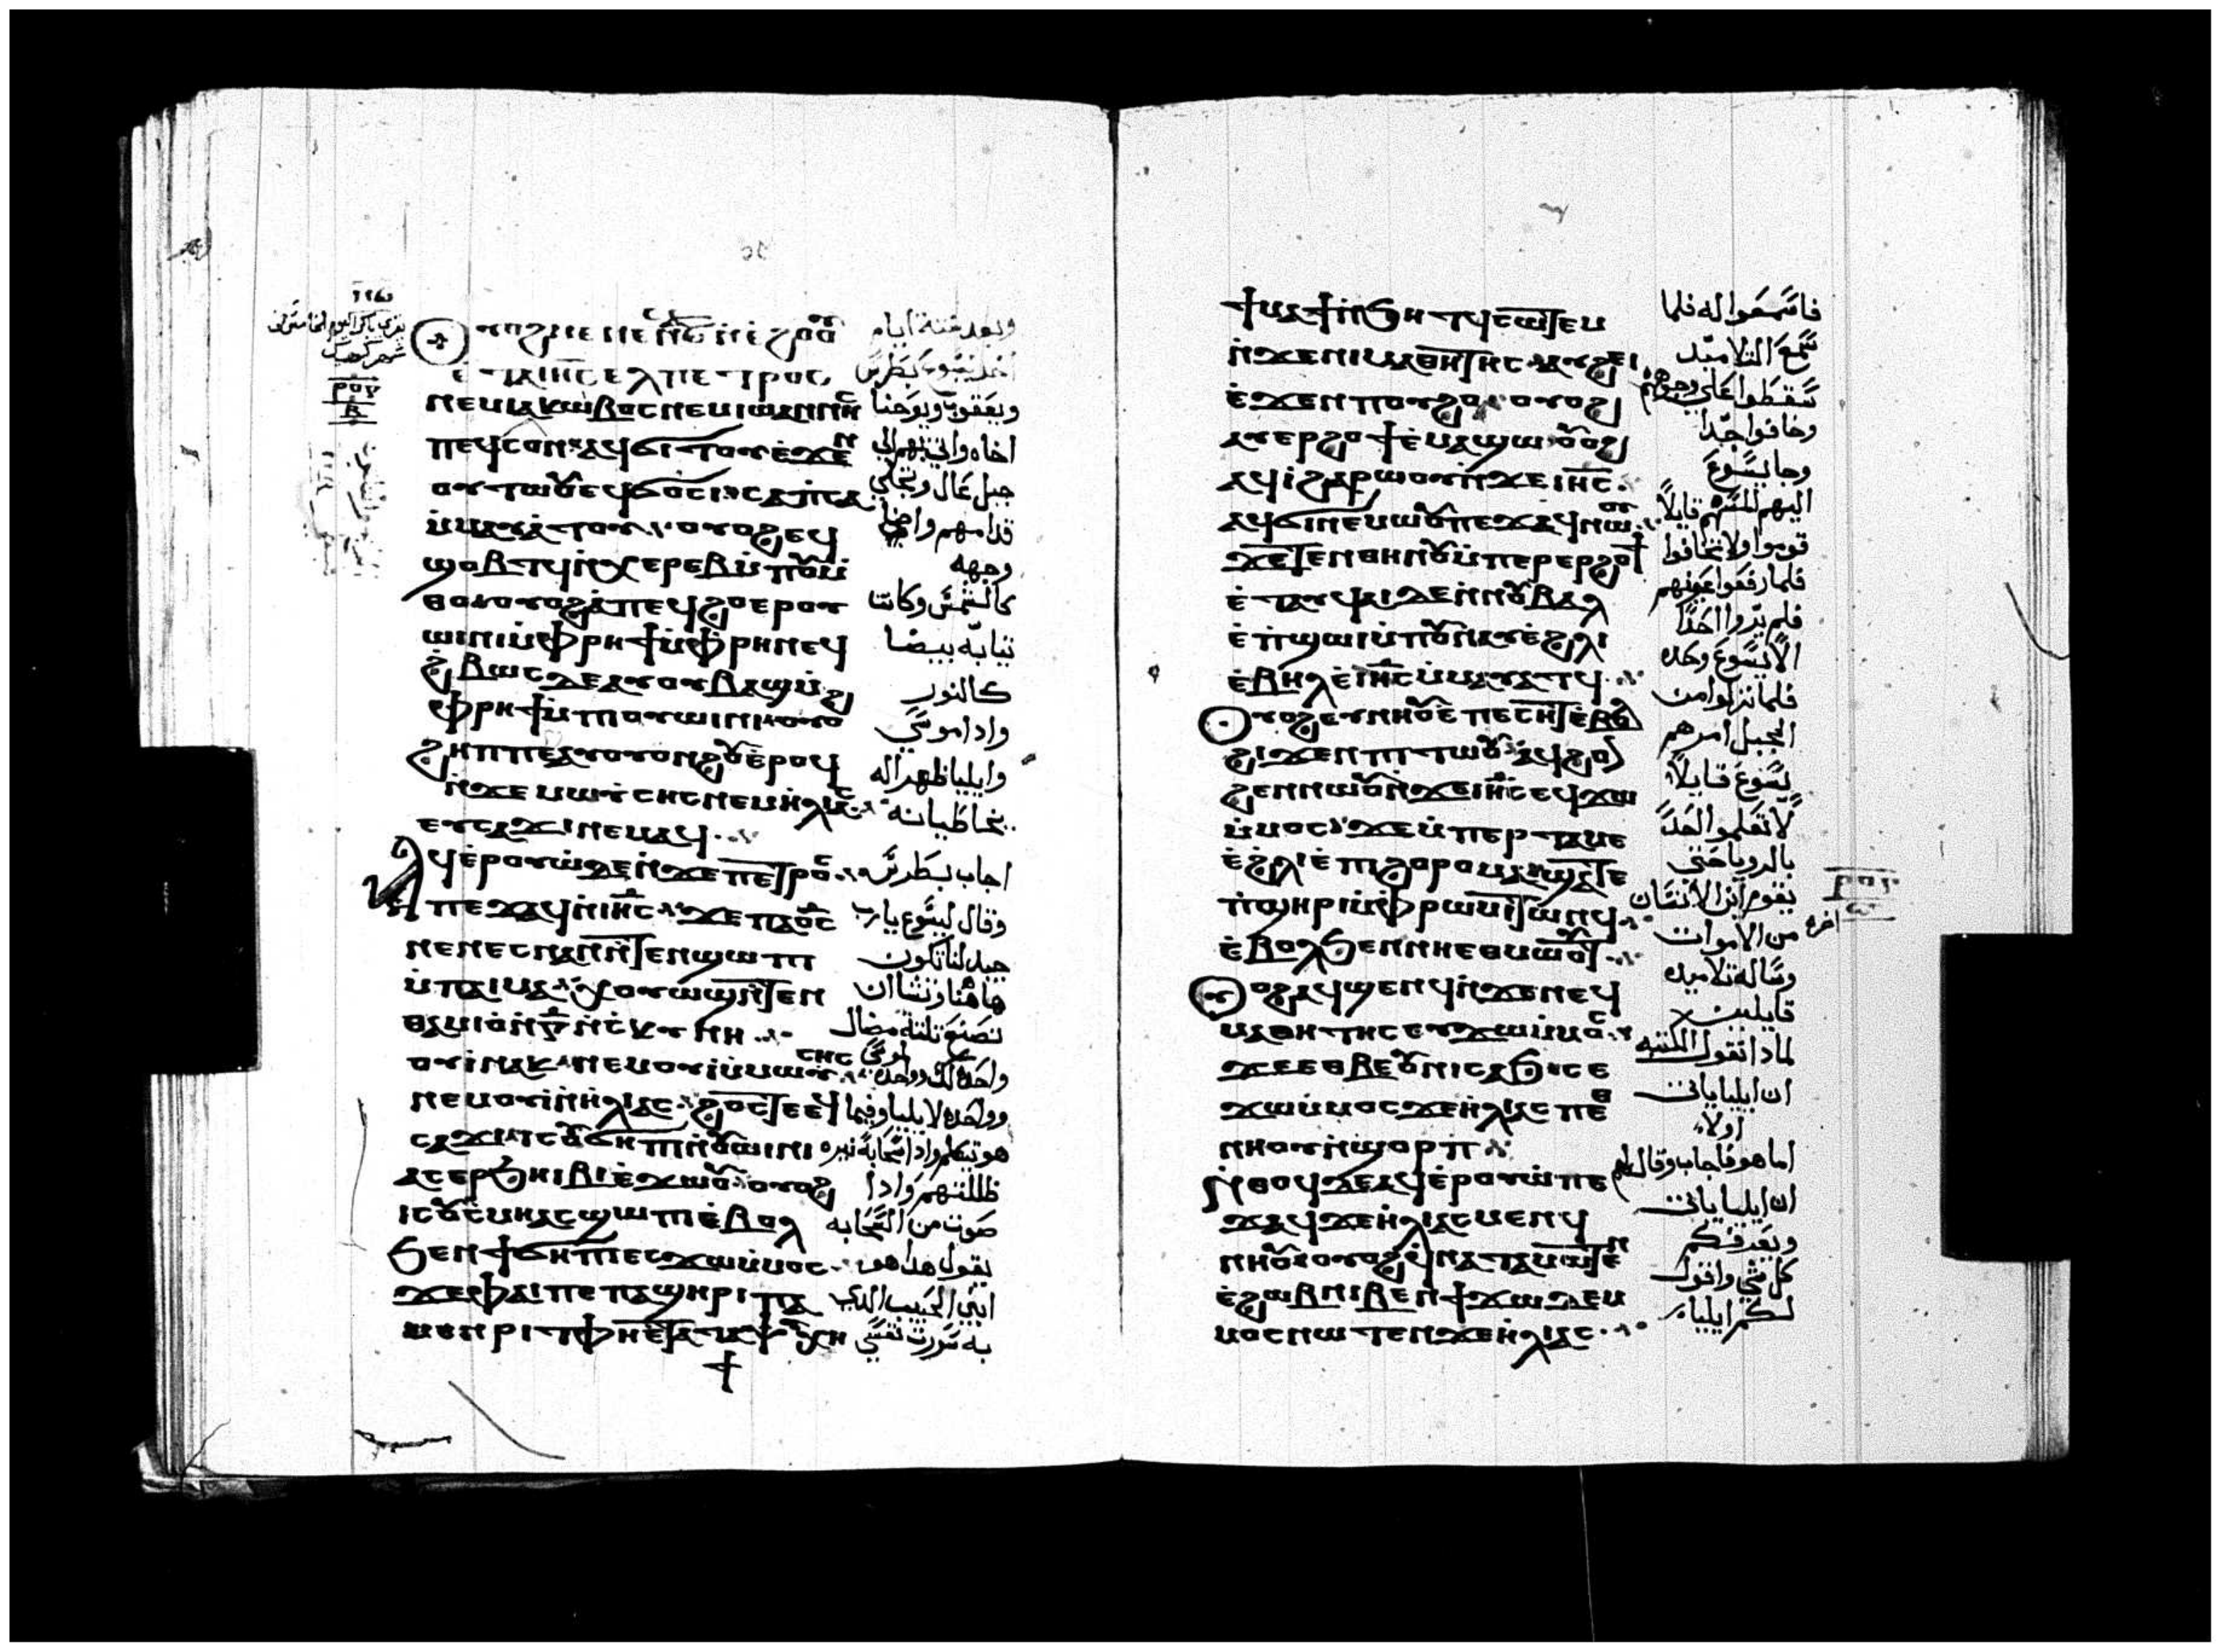 ⲛⲉⲙⲓⲁⲕⲱⲃⲟⲥⲛⲉⲙⲓⲱⲁⲛⲛⲏⲥ
ⲡⲉϥⲥⲟⲛⲁϥϭⲓⲧⲟⲩⲉϫⲉⲛ
ⲟⲩⲧⲱⲟⲩⲉϥϭⲟⲥⲓ
ⲙⲙⲁⲩⲁⲧⲟⲩ ⲟⲩⲟϩⲉϥ
ϣⲟⲃⲧϥⲛⲭⲉⲣⲉⲃⲙⲡⲟⲩⲙ
ⲑⲟⲟⲩⲟϩⲁⲡⲉϥϩⲟⲉⲣⲟⲩ
ⲱⲓⲛⲓⲙⲫⲣⲏϯⲙⲫⲣⲏⲛⲉϥ
ϩⲃⲱⲥⲇⲉⲁⲩⲟⲩⲃⲁϣⲙ
ⲫⲣⲏϯⲙⲡⲓⲟⲩⲱⲓⲛⲓⲟⲩⲟ
ϩⲏⲡⲡⲉⲁⲩⲟⲩⲟⲛϩⲟⲩⲉⲣⲟϥ
ⲛϫⲉⲙⲱⲩⲥⲏⲥⲛⲉⲙⲏⲗⲓⲁⲥ
ⲉⲩⲥⲁϫⲓⲛⲉⲙⲁϥ
ⲁϥⲉⲣⲟⲩⲱⲇⲉⲛϫⲉⲡⲉⲧⲣⲟⲥ
ⲡⲉϫⲁϥⲛⲓⲏⲥ ϫⲉⲡⲁⲟⲥ
ⲛⲉⲛⲉⲥⲛⲁⲛⲛⲧⲉⲛϣⲱⲡⲓ
ⲙⲡⲁⲓⲙⲁ ⲭⲟⲩⲱϣⲛⲧⲉⲛ
ⲑⲁⲙⲓⲟⲛⲅⲛⲥⲕⲩⲛⲏ
ⲟⲩⲓⲛⲁⲕ ⲛⲉⲙⲟⲩⲓⲙⲙⲱⲩⲥⲏⲥ
ⲛⲉⲙⲟⲩⲓⲛⲏⲗⲓⲁⲥ ϩⲟⲥⲧⲉⲉϥ
ⲥⲁϫⲓ ⲓⲥⲟⲩϭⲏⲡⲓⲛⲟⲩⲱⲓⲛⲓ
ⲁⲥⲉⲣϧⲏⲓⲃⲓⲉϫⲱⲟⲩ ⲟⲩⲟϩ
ⲓⲥⲟⲩⲥⲙⲏⲁⲥϣⲱⲡⲓⲉⲃⲟⲗ
ϧⲉⲛϯϭⲏⲡⲓⲉⲥϫⲱⲙⲙⲟⲥ
ϫⲉⲫⲁⲓⲡⲉⲡⲁϣⲏⲣⲓⲡⲁ
ⲙⲉⲛⲣⲓⲧⲫⲏⲉⲧⲁⲧⲁⲯⲩⲭⲏ
وبعد ستة ايام
ويعقوب ويوحنا
جبل عال وتجلي
وجهه
كالشمس وكانت
ثيابه بيضا
كالنور
واذا موسي
وايليا ظهرا له
يخاطبانه
اجاب بطرس
وقال ليسوع يارب
جيد لنا نكون
هاهنا ونشا ان
واذا
صوت من السحابه
يقول هذا هو
ابني الحبيب الذي
به سرت نفسي
ϯⲙⲁϯⲛϧⲏⲧϥⲥⲱⲧⲉⲙ
ⲛϫⲉⲛⲓⲙⲁⲑⲏⲧⲏⲥ ⲁⲩϩⲉⲓ
ⲉϫⲉⲛⲡⲟⲩϩⲟ ⲟⲩⲟϩ
ⲁⲩⲉⲣϩⲟϯⲉⲙⲁϣⲱ ⲟⲩⲟϩ
ⲁϥⲓϩⲁⲣⲱⲟⲩⲛϫⲉⲓⲏⲥ
ⲁϥϭⲓⲛⲉⲙⲱⲟⲩⲡⲉϫⲁϥⲛⲱⲟⲩ
ϫⲉⲧⲉⲛⲑⲏⲛⲟⲩⲙⲡⲉⲣⲉⲣϩⲟϯ
ⲉⲧⲁⲩϥⲁⲓⲇⲉⲛⲛⲟⲩⲃⲁⲗ
ⲉⲡϣⲱⲓⲙⲡⲟⲩⲛⲁⲩⲉϩⲗⲓ
ⲉⲃⲏⲗⲉⲓⲏⲥⲙⲙⲁⲩⲁⲧϥ
ⲟⲩⲟϩⲉⲩⲛⲏⲟⲩⲉⲡⲉⲥⲏⲧⲉⲃⲟⲗ
ϩⲓϫⲉⲛⲡⲓⲧⲱⲟⲩ ⲁϥϩⲟⲛ
ϩⲉⲛⲛⲱⲟⲩⲛϫⲉⲓⲏⲥⲉϥϫⲱ
ⲙⲙⲟⲥ ϫⲉⲙⲡⲉⲣⲧⲁⲙⲉ
ⲉϩⲗⲓⲉⲡⲓϩⲟⲣⲟⲙⲁ ϣⲁⲧⲉ
ⲡϣⲏⲣⲓⲙⲫⲣⲱⲙⲓⲧⲱⲛϥ
ⲉⲃⲟⲗϧⲉⲛⲛⲏⲉⲑⲙⲱⲟⲩⲧ
ⲟⲩⲟϩⲁⲩϣⲉⲛϥⲛϫⲉⲛⲉϥ
ⲙⲁⲑⲏⲧⲏⲥⲉⲩϫⲱⲙⲙⲟⲥ
ϫⲉⲉⲑⲃⲉⲟⲩⲛⲓⲥⲁϧⲥⲉ
ϫⲱⲙⲙⲟⲥϫⲉⲏⲗⲓⲁⲥⲡⲉⲑ
ⲛⲏⲟⲩⲛϣⲟⲣⲡ
ⲛⲑⲟϥⲇⲉⲁϥⲉⲣⲟⲩⲱⲡⲉ
ϫⲁϥϫⲉⲏⲗⲓⲁⲥⲙⲉⲛϥ
ⲛⲏⲟⲩⲟⲩⲟϩϥⲛⲁⲧⲁⲙⲱⲧⲉⲛ
ⲉϩⲱⲃⲛⲓⲃⲉⲛϯϫⲱⲇⲉⲙ
ⲙⲟⲥⲛⲱⲧⲉⲛϫⲉⲏⲗⲓⲁⲥ
فاسمعوا له فلما
سمع التلاميد
سقطوا علي وجوههم
وخافوا جدا
وجا يسوع
اليهم لمسهم قايلا
قوموا ولا تخافوا
فلما رفعوا عيونهم
فلم يروا احدا
الا يسوع وحده
فلما نزلوا من
الجبل امرهم
يسوع قايلا
لا تعلموا احدا
بالرويا حتي
يقوم ابن الانسان
من الاموات
وساله تلاميده
قايلين
لماذا تقول الكتبه
ان ايليا ياتي
اولا
اما هو فاجاب وقال لهم
ان ايليا ياتي
ويعرفكم
كل شي واقول
لكم ايليا